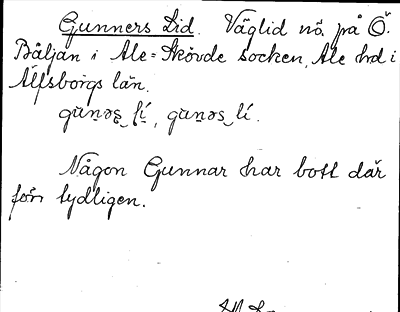 Gunners Lid. Väglid nö på Ö.
Båljan i Ale-Skövde socken, Ale hrd i
Älfsborgs län.
gunəs lí, gunəs lí.
Någon Gunnar har bott där
förr tydligen.